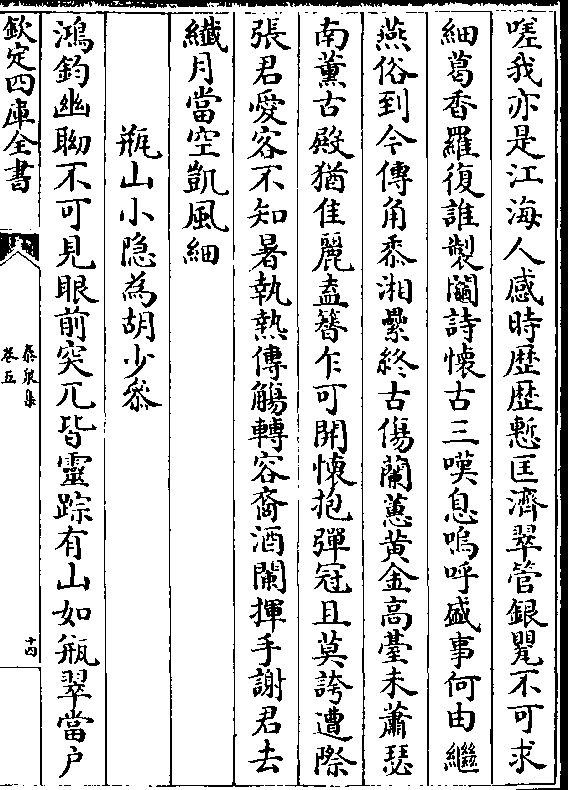 嗟我亦是江海人感時歴歴慙匡濟翠管銀罌不可求
細葛香羅復誰製闔詩懷古三嘆息嗚呼盛事何由繼
燕俗到今傳角黍湘纍終古傷蘭蕙黄金高臺未蕭瑟
南薰古殿猶佳麗盍簪乍可開懷抱彈冠且莫誇遭際
張君愛客不知暑執熱傳觴轉容裔酒闌揮手謝君去
纎月當空凱風細
瓶山小隐為胡少叅
鴻鈞幽眇不可見眼前突兀皆靈踪有山如瓶翠當户
欽定四庫全書
卷五
十四